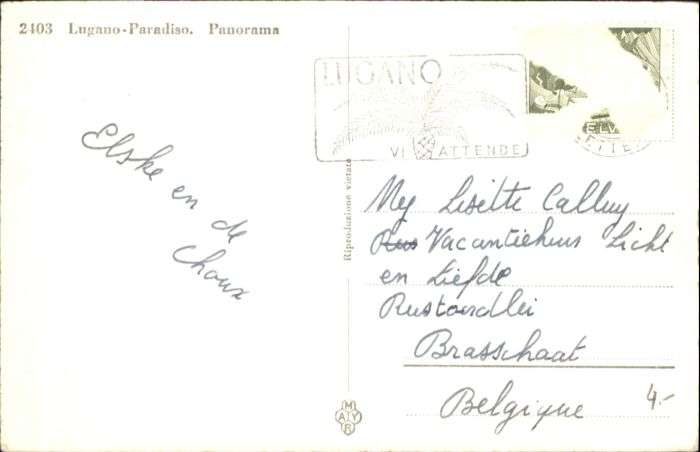 2403 Lugano-Paradiso. Panorama
LUGANO
VI ATTENDE
Elske en de
Choux
Riproduzione vietata
Mej Lisette Calluy
Rus Vacantiehuis Licht
en Liefde
Rustoordlei
Brasschaat
Belgique
4.-
MAYR